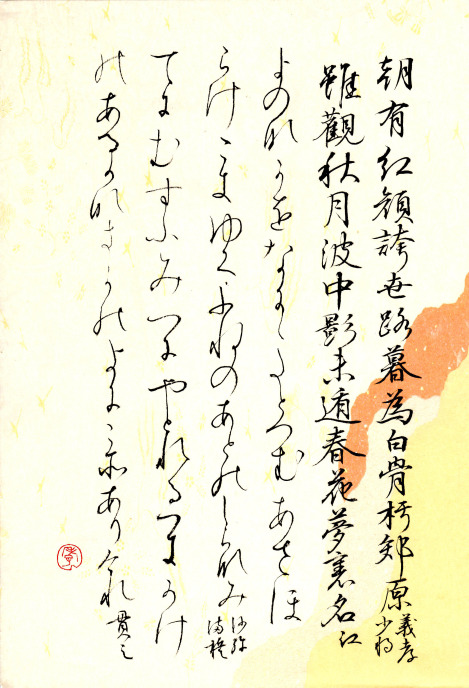 朝有紅顔誇世路暮為白骨朽郊原義孝少将
雖觀秋月波中影未遁春花夢裏名江
よのなかをなにゝたとへむあさほ
らけこきゆくふねのあとのしらなみ沙弥満誓
てにむすふみつにやとれるつきかけ
のあるかなきかのよにこそありけれ貫之